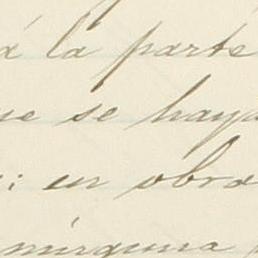 á la parte
ue se haya
: en obra
ninguna